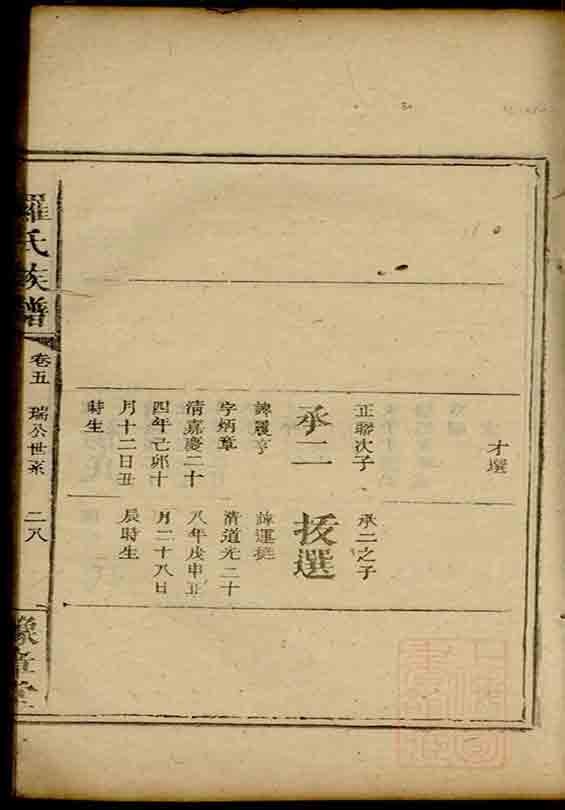 才選
正聯次子
承二
諱履亨
字炳章
清嘉慶二十
四年己卯十
月十二日丑
時生
承二之子
拔選
諱運
清道光二十
八年戊申正
月二十八日
辰時生
羅氏族譜
卷五
瑞公世系
二八
豫章堂